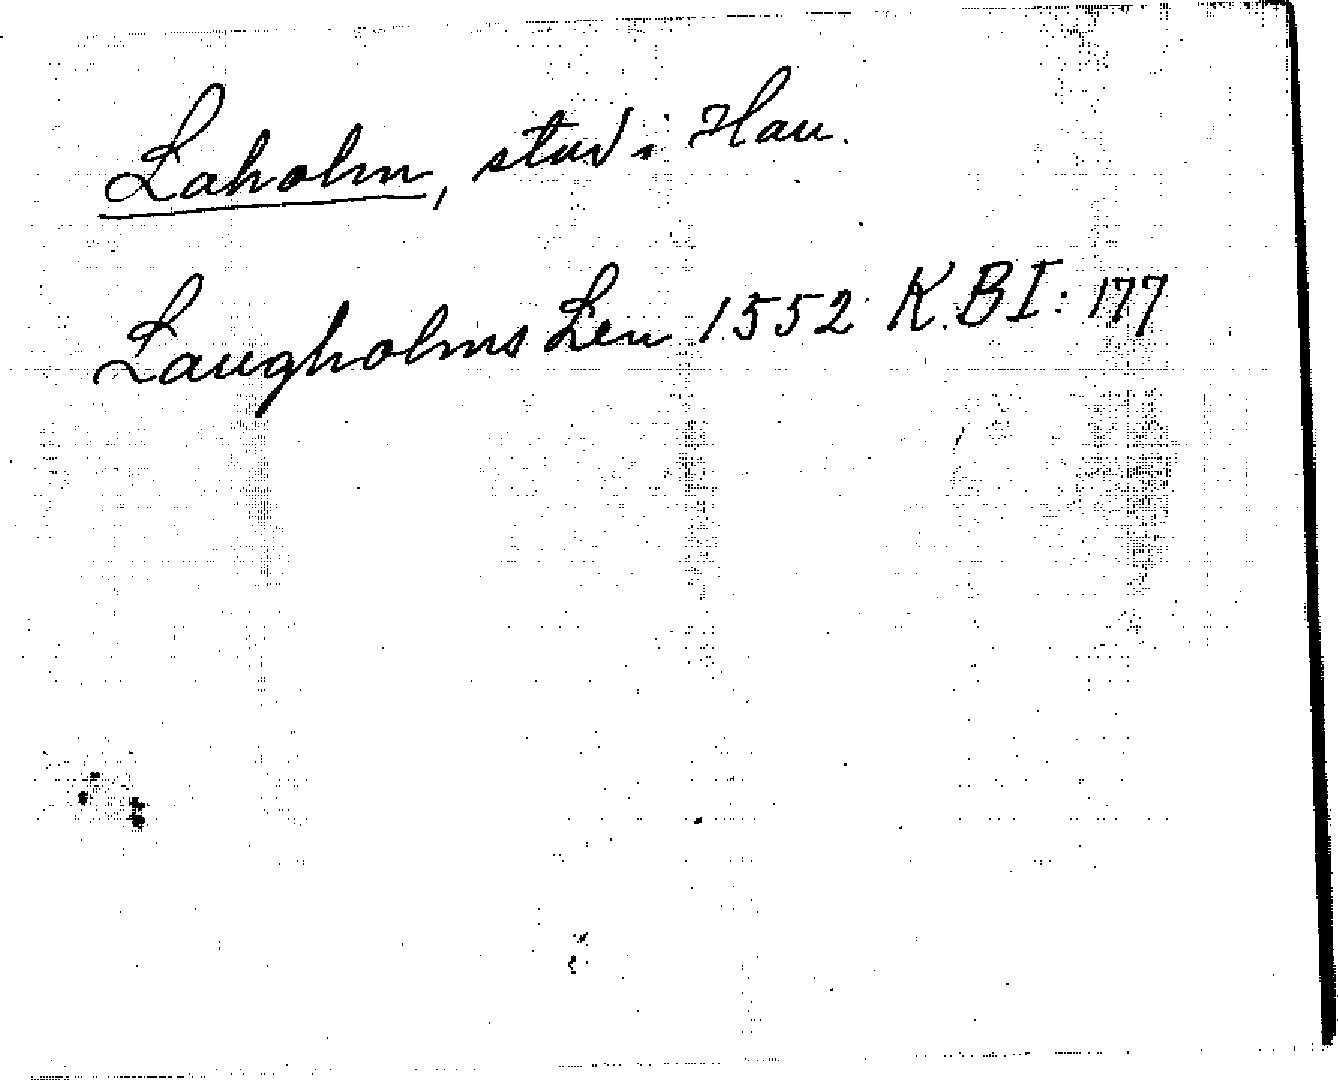 Laholm, stad i Hall.
Laugholms Len 1552 K.B I: 177